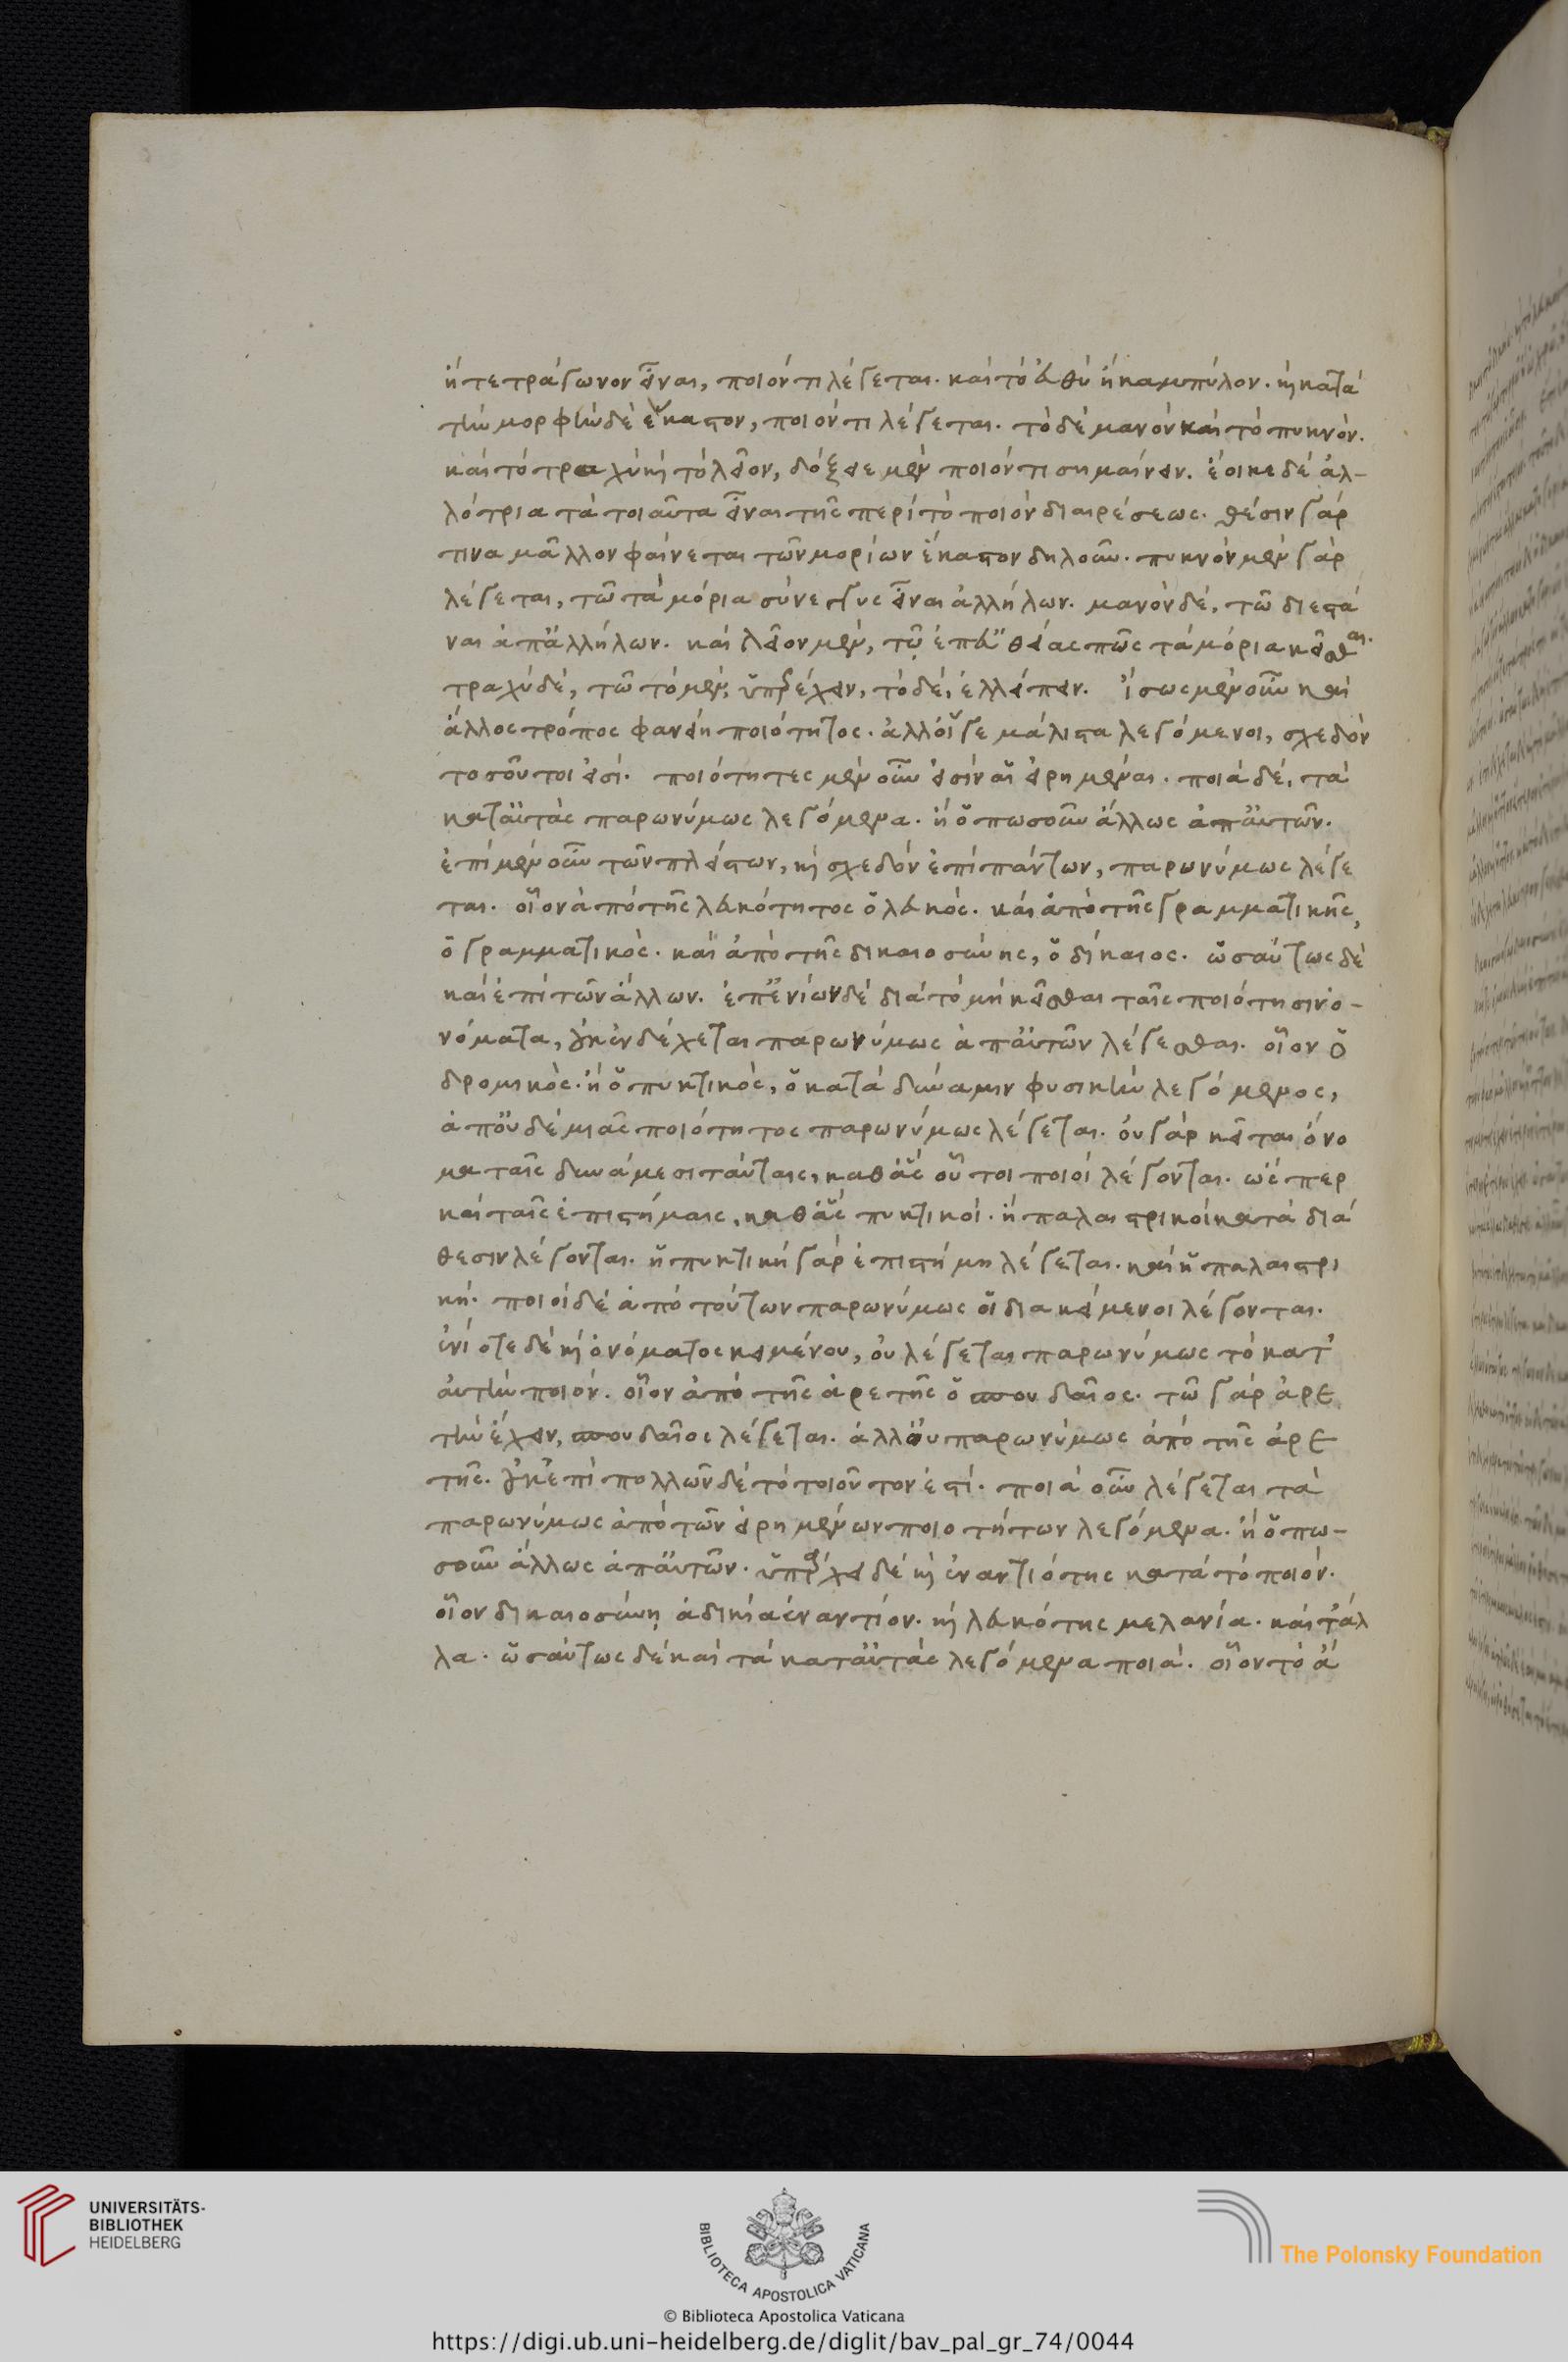 ἢ τετράγωνον εἶναι, ποιόν τι λέγεται. καὶ τὸ εὐθὺ ἢ καμπύλον. καὶ κατὰ
τὴν μορφὴν δὲ ἕκαστον, ποιόν τι λέγεται. τὸ δὲ μανὸν καὶ τὸ πυκνόν.
καὶ τὸ τραχὺ καὶ τὸ λεῖον, δόξειε μὲν ποιόν τι σημαίνειν. ἔοικε δὲ ἀλ-
λότρια τὰ τοιαῦτα εἶναι τῆς περὶ τὸ ποιὸν διαιρέσεως. θέσιν γάρ
τινα μᾶλλον φαίνεται τῶν μορίων ἕκαστον δηλοῦν. πυκνὸν μὲν γὰρ
λέγεται, τῶ τὰ μόρια σύνεγγυς εἶναι ἀλλήλων. μανὸν δέ, τῶ διεστά
ναι ἀπ' ἀλλήλων. καὶ λεῖον μὲν, τῷ ἐπ' εὐθείας πῶς τὰ μόρια κεῖσθαι.
τραχὺ δέ, τῶ τὸ μὲν, ὑπερέχειν, τὸ δέ, ἐλλείπειν. ἴσως μὲν οὖν καὶ
ἄλλος τρόπος φανείη ποιότητος. ἀλλ' οἵ γε μάλιστα λεγόμενοι, σχεδὸν
τοσοῦτοι εἰσί. ποιότητες μὲν οὖν εἰσὶν αἱ εἰρημέναι. ποιὰ δέ, τὰ
κατ' αὐτὰς παρωνύμως λεγόμενα. ἢ ὁπωσοῦν ἄλλως ἀπ' αὐτῶν.
ἐπὶ μὲν οὖν τῶν πλείστων, καὶ σχεδὸν ἐπὶ πάντων, παρωνύμως λέγε
ται. οἷον ἀπὸ τῆς λευκότητος ὁ λευκός. καὶ ἀπὸ τῆς γραμματικῆς,
ὁ γραμματικός. καὶ ἀπὸ τῆς δικαιοσύνης, ὁ δίκαιος. ὡσαύτως δὲ
καὶ ἐπὶ τῶν ἄλλων. ἐπ' ἐνίων δὲ διὰ τὸ μὴ κεῖσθαι ταῖς ποιότησιν ὀ-
νόματα, οὐκ ἐνδέχεται παρωνύμως ἀπ' αὐτῶν λέγεσθαι. οἷον ὁ
δρομικός. ἢ ὁ πυκτικός, ὁ κατὰ δύναμιν φυσικὴν λεγόμενος,
ἀπ' οὐδεμιᾶς ποιότητος παρωνύμως λέγεται. οὐ γὰρ κεῖται ὄνο
μα ταῖς δυνάμεσι ταύταις, καθ' ἃς οὗτοι ποιοὶ λέγονται. ὥσπερ
καὶ ταῖς ἐπιστήμαις, καθ' ἃς πυκτικοὶ. ἢ παλαιστρικοὶ κατὰ διά
θεσιν λέγονται. ἡ πυκτικὴ γὰρ ἐπιστήμη λέγεται. καὶ ἡ παλαιστρι
κή. ποιοὶ δὲ ἀπὸ τούτων παρωνύμως οἱ διακείμενοι λέγονται.
ἐνίοτε δὲ καὶ ὀνόματος κειμένου, οὐ λέγεται παρωνύμως τὸ κατ'
αὐτὴν ποιόν. οἷον ἀπὸ τῆς ἀρετῆς ὁ σπουδαῖος. τῶ γὰρ ἀρε
τὴν ἔχειν, σπουδαῖος λέγεται. ἀλλ' οὐ παρωνύμως ἀπὸ τῆς ἀρε
τῆς. οὐκ ἐπὶ πολλῶν δὲ τὸ τοιοῦτον ἐστί. ποιὰ οὖν λέγεται τὰ
παρωνύμως ἀπὸ τῶν εἰρημένων ποιοτήτων λεγόμενα. ἢ ὁπω-
σοῦν ἄλλως ἀπ' αὐτῶν. ὑπάρχει δὲ καὶ ἐναντιότης κατὰ τὸ ποιόν.
οἷον δικαιοσύνῃ ἀδικία ἐναντίον. καὶ λευκότης μελανία. καὶ τἄλ
λα. ὡσαύτως δὲ καὶ τὰ κατ' αὐτὰς λεγόμενα ποιά. οἷον τὸ ἄ
UNIVERSITÄTS-
BIBLIOTHEK
HEIDELBERG
BIBLIOTECA APOSTOLICA VATICANA
The Polonsky Foundation
© Biblioteca Apostolica Vaticana
https://digi.ub.uni-heidelberg.de/diglit/bav_pal_gr_74/0044